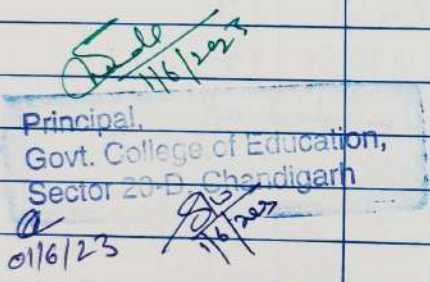 1/6/2023
Principal,
Govt. College of Education,
Sector 20-D, Chandigarh
01/6/23
1/6/2023